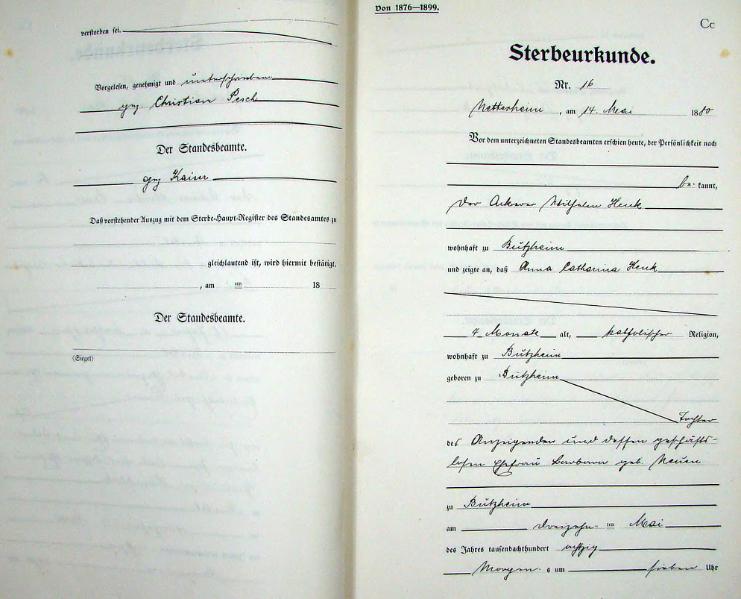 verstorben sei.
Vorgelesen, genehmigt und unterschrieben
gez Christian Pesch
Der Standesbeamte.
gez Kaiser
Daß vorstehender Auszug mit dem Sterbe-Haupt-Register des Standesamts zu
gleichlautend ist, wird hiermit bestätigt.
, am ten 18
Der Standesbeamte.
(Siegel)
Von 1876—1899.
Cc
Sterbeurkunde.
Nr. 16
Nettersheim, am 14. Mai 1880
Vor dem unterzeichneten Standesbeamten erschien heute, der Persönlichkeit nach
be kannt,
der Ackerer Wilhelm Henk
wohnhaft zu Bützheim
und zeigte an, daß Anna Catharina Henk
4 Monate alt, katholischer Religion,
wohnhaft zu Bützheim
geboren zu Bützheim
Tochter
des Anzeigenden und dessen geschäfts-
losen Ehefrau Barbara geb. Neuen
zu Bützheim
am dreizehn ten Mai
des Jahres tausendachthundert achtzig
Morgens um sieben Uhr